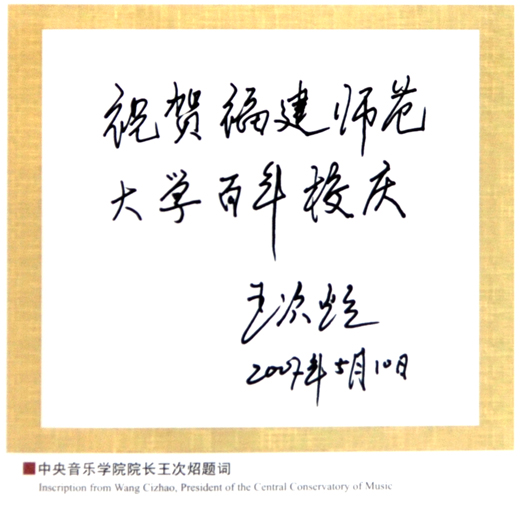 祝贺福建师范
大学百年校庆
王次炤
2007年5月10日
中央音乐学院院长王次炤题词
Inscription from Wang Cizhao, President of the Central Conservatory of Music